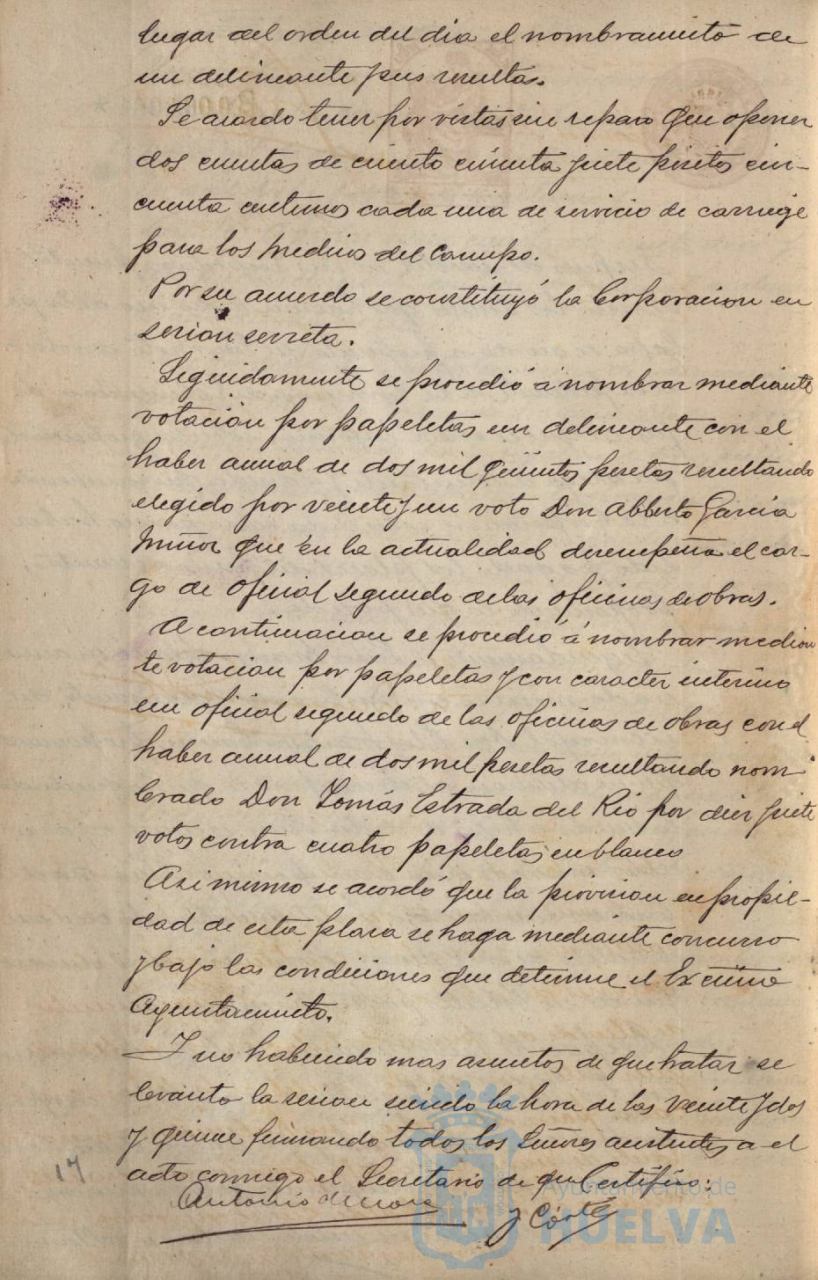 lugar del orden del dia el nombramiento de
un delineante pus resultas.
Se acordo tener por vistas sin reparo que oponer
dos cuentas de ciento cincuenta y siete pesetas cin-
cuenta centimos cada una de servicio de carruaje
para los Medicos del Campo.
Por su acuerdo se constituyó la Corporacion en
sesion secreta.
Seguidamente se procedió á nombrar mediante
votación por papeletas un delineante con el
haber anual de dos mil quinientos pesetas resultando
elegido por veinte y un voto Don Alberto Garcia
que en la actualidad desempeña el car-
go de oficial segundo de las oficinas de obras.
A continuacion se procedió á nombrar median
te votacion por papeletas y con caracter interino
un oficial segundo de las oficinas de obras con el
haber anual de dos mil pesetas resultando nom
brado Don Tomás Estrada del Rio por diez y siete
votos contra cuatro papeletas en blanco
Asi mismo se acordó que la provision en propie-
dad de esta plaza se haga mediante concurso
y bajo las condiciones que determine el Excmo
Ayuntamiento.
Y no habiendo mas asuntos de que tratar se
levanto la sesion siendo la hora de las veinte y dos
y quince firmando todos los Señores asistentes a el
acto conmigo el Secretario de que Certifico:
Antonio de Mora
y
17
Ayuntamiento de
HUELVA